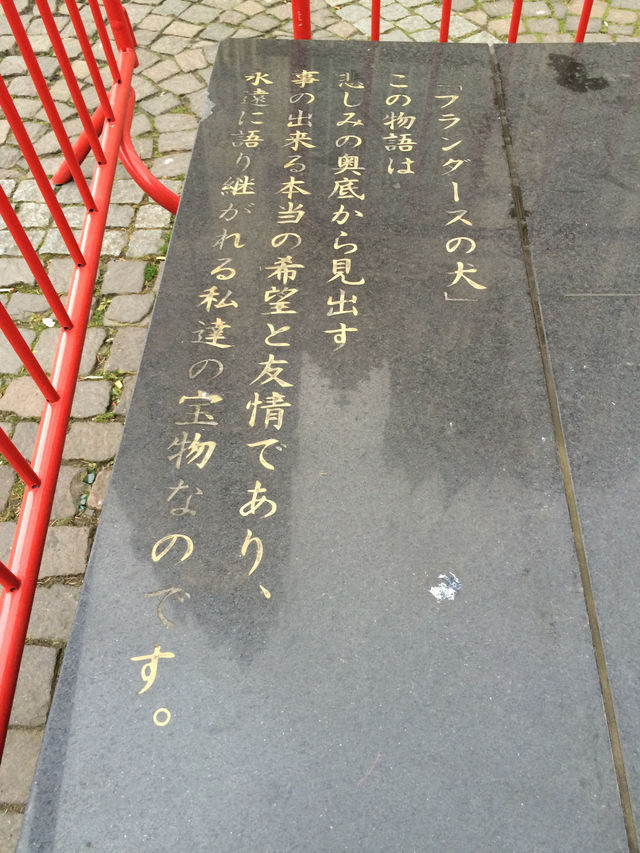 「フランダースの犬」
この物語は
悲しみの奥底から見出す
事の出来る本当の希望と友情であり、
永遠に語り継がれる私達の宝物なのです。